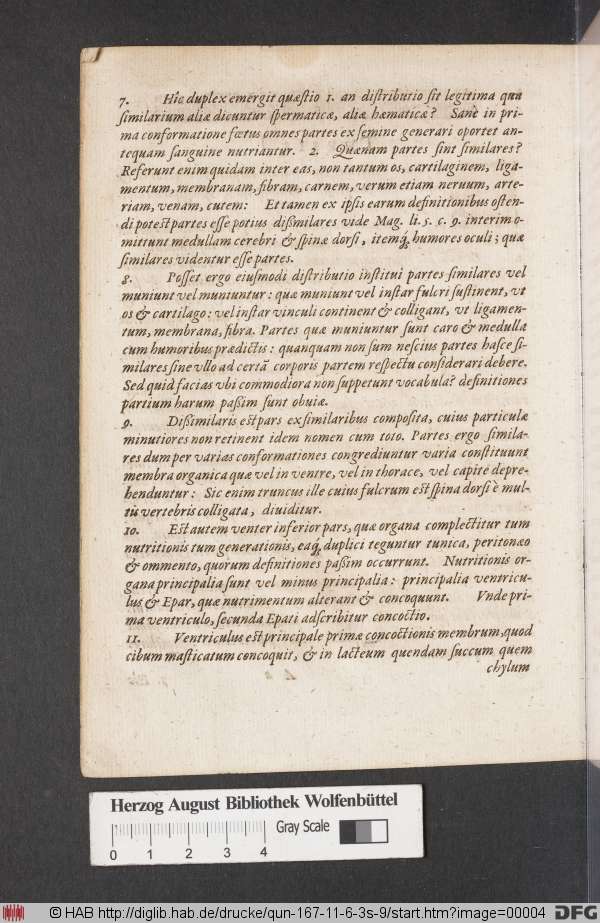 7. Hîc duplex emergit quæstio 1. an distributio sit legitima qua
similarium aliæ dicuntur spermaticæ, aliæ hæmaticæ? Sanè in pri-
ma conformatione fœtus omnes partes ex semine generari oportet an-
tequam sanguine nutriantur. 2. Quænam partes sint similares?
Referunt enim quidam inter eas, non tantum os, cartilaginem, liga-
mentum, membranam, fibram, carnem, verum etiam neruum, arte-
riam, venam, cutem: Et tamen ex ipsis earum definitionibus osten-
di potest partes esse potius dißimilares vide Mag. li. 5. c. 9. interim o-
mittunt medullam cerebri & spinæ dorsi, itemq́, humores oculi; quæ
similares videntur esse partes.
8. Posset ergo eiusmodi distributio institui partes similares vel
muniunt vel muniuntur: quæ muniunt vel instar fulcri sustinent, vt
os & cartilago: vel instar vinculi continent & colligant, vt ligamen-
tum, membrana, fibra. Partes quæ muniuntur sunt caro & medulla
cum humoribus prædictis: quanquam non sum nescius partes hasce si-
milares sine vllo ad certā corporis partem respectu considerari debere.
Sed quid facias vbi commodiora non suppetunt vocabula? definitiones
partium harum paßim sunt obuiæ.
9. Dißimilaris est pars ex similaribus composita, cuius particulæ
minutiores non retinent idem nomen cum toto. Partes ergo simila-
res dum per varias conformationes congrediuntur varia constituunt
membra organica quæ vel in ventre, vel in thorace, vel capite depre-
henduntur: Sic enim truncus ille cuius fulcrum est spina dorsi è mul-
tis vertebris colligata, diuiditur.
10. Est autem venter inferior pars, quæ organa complectitur tum
nutritionis tum generationis, eaq́, duplici teguntur tunica, peritonæo
& ommento, quorum definitiones paßim occurrunt. Nutritionis or-
gana principalia sunt vel minus principalia: principalia ventricu-
lus & Epar, quæ nutrimentum alterant & concoquunt. Vnde pri-
ma ventriculo, secunda Epati adscribitur concoctio.
11. Ventriculus est principale primæ concoctionis membrum, quod
cibum masticatum concoquit, & in lacteum quendam succum quem
chylum
Herzog August Bibliothek Wolfenbüttel
Gray Scale
0 1 2 3 4
© HAB http://diglib.hab.de/drucke/qun-167-11-6-3s-9/start.htm?image=00004
DFG